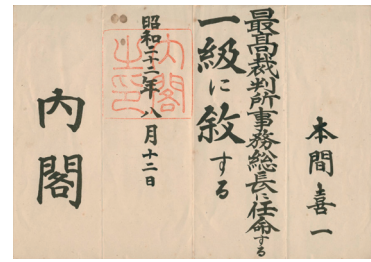 本間喜一
最高裁判所事務総長に任命する
一級に敘する
昭和二十二年八月十二日
内閣之印
内閣